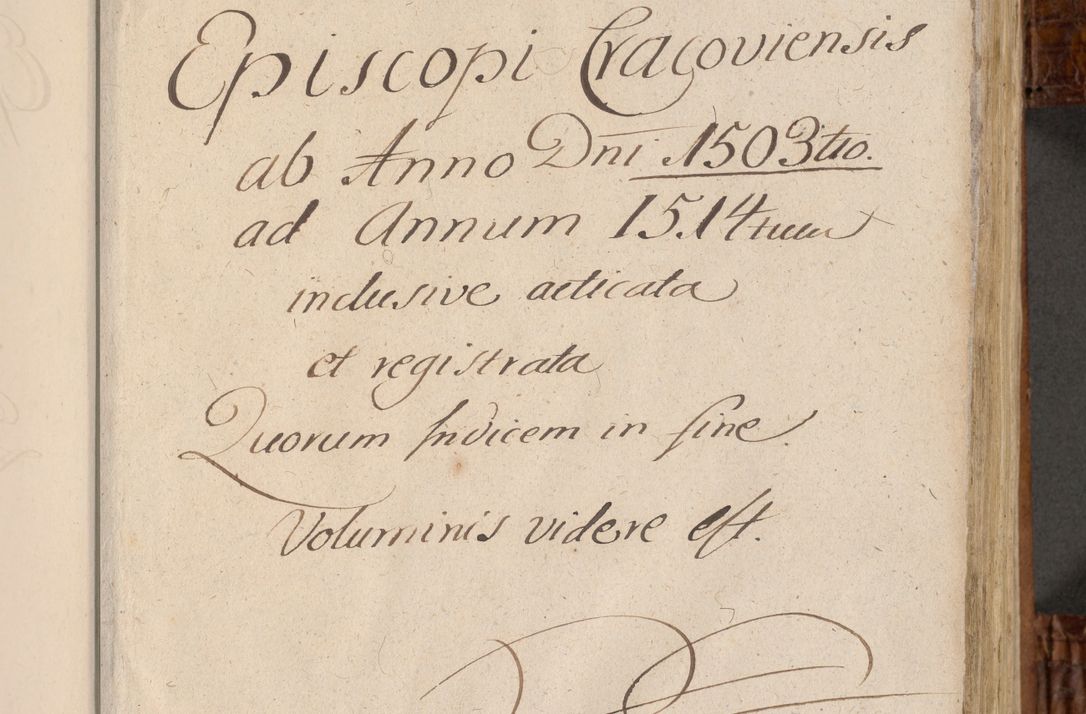 Episcopi Cracoviensis
ab Anno Dni 1503tio.
ad Annum 1514tum
inclusive acticata
et registrata
Quorum Indicem in fine
Voluminis videre est.